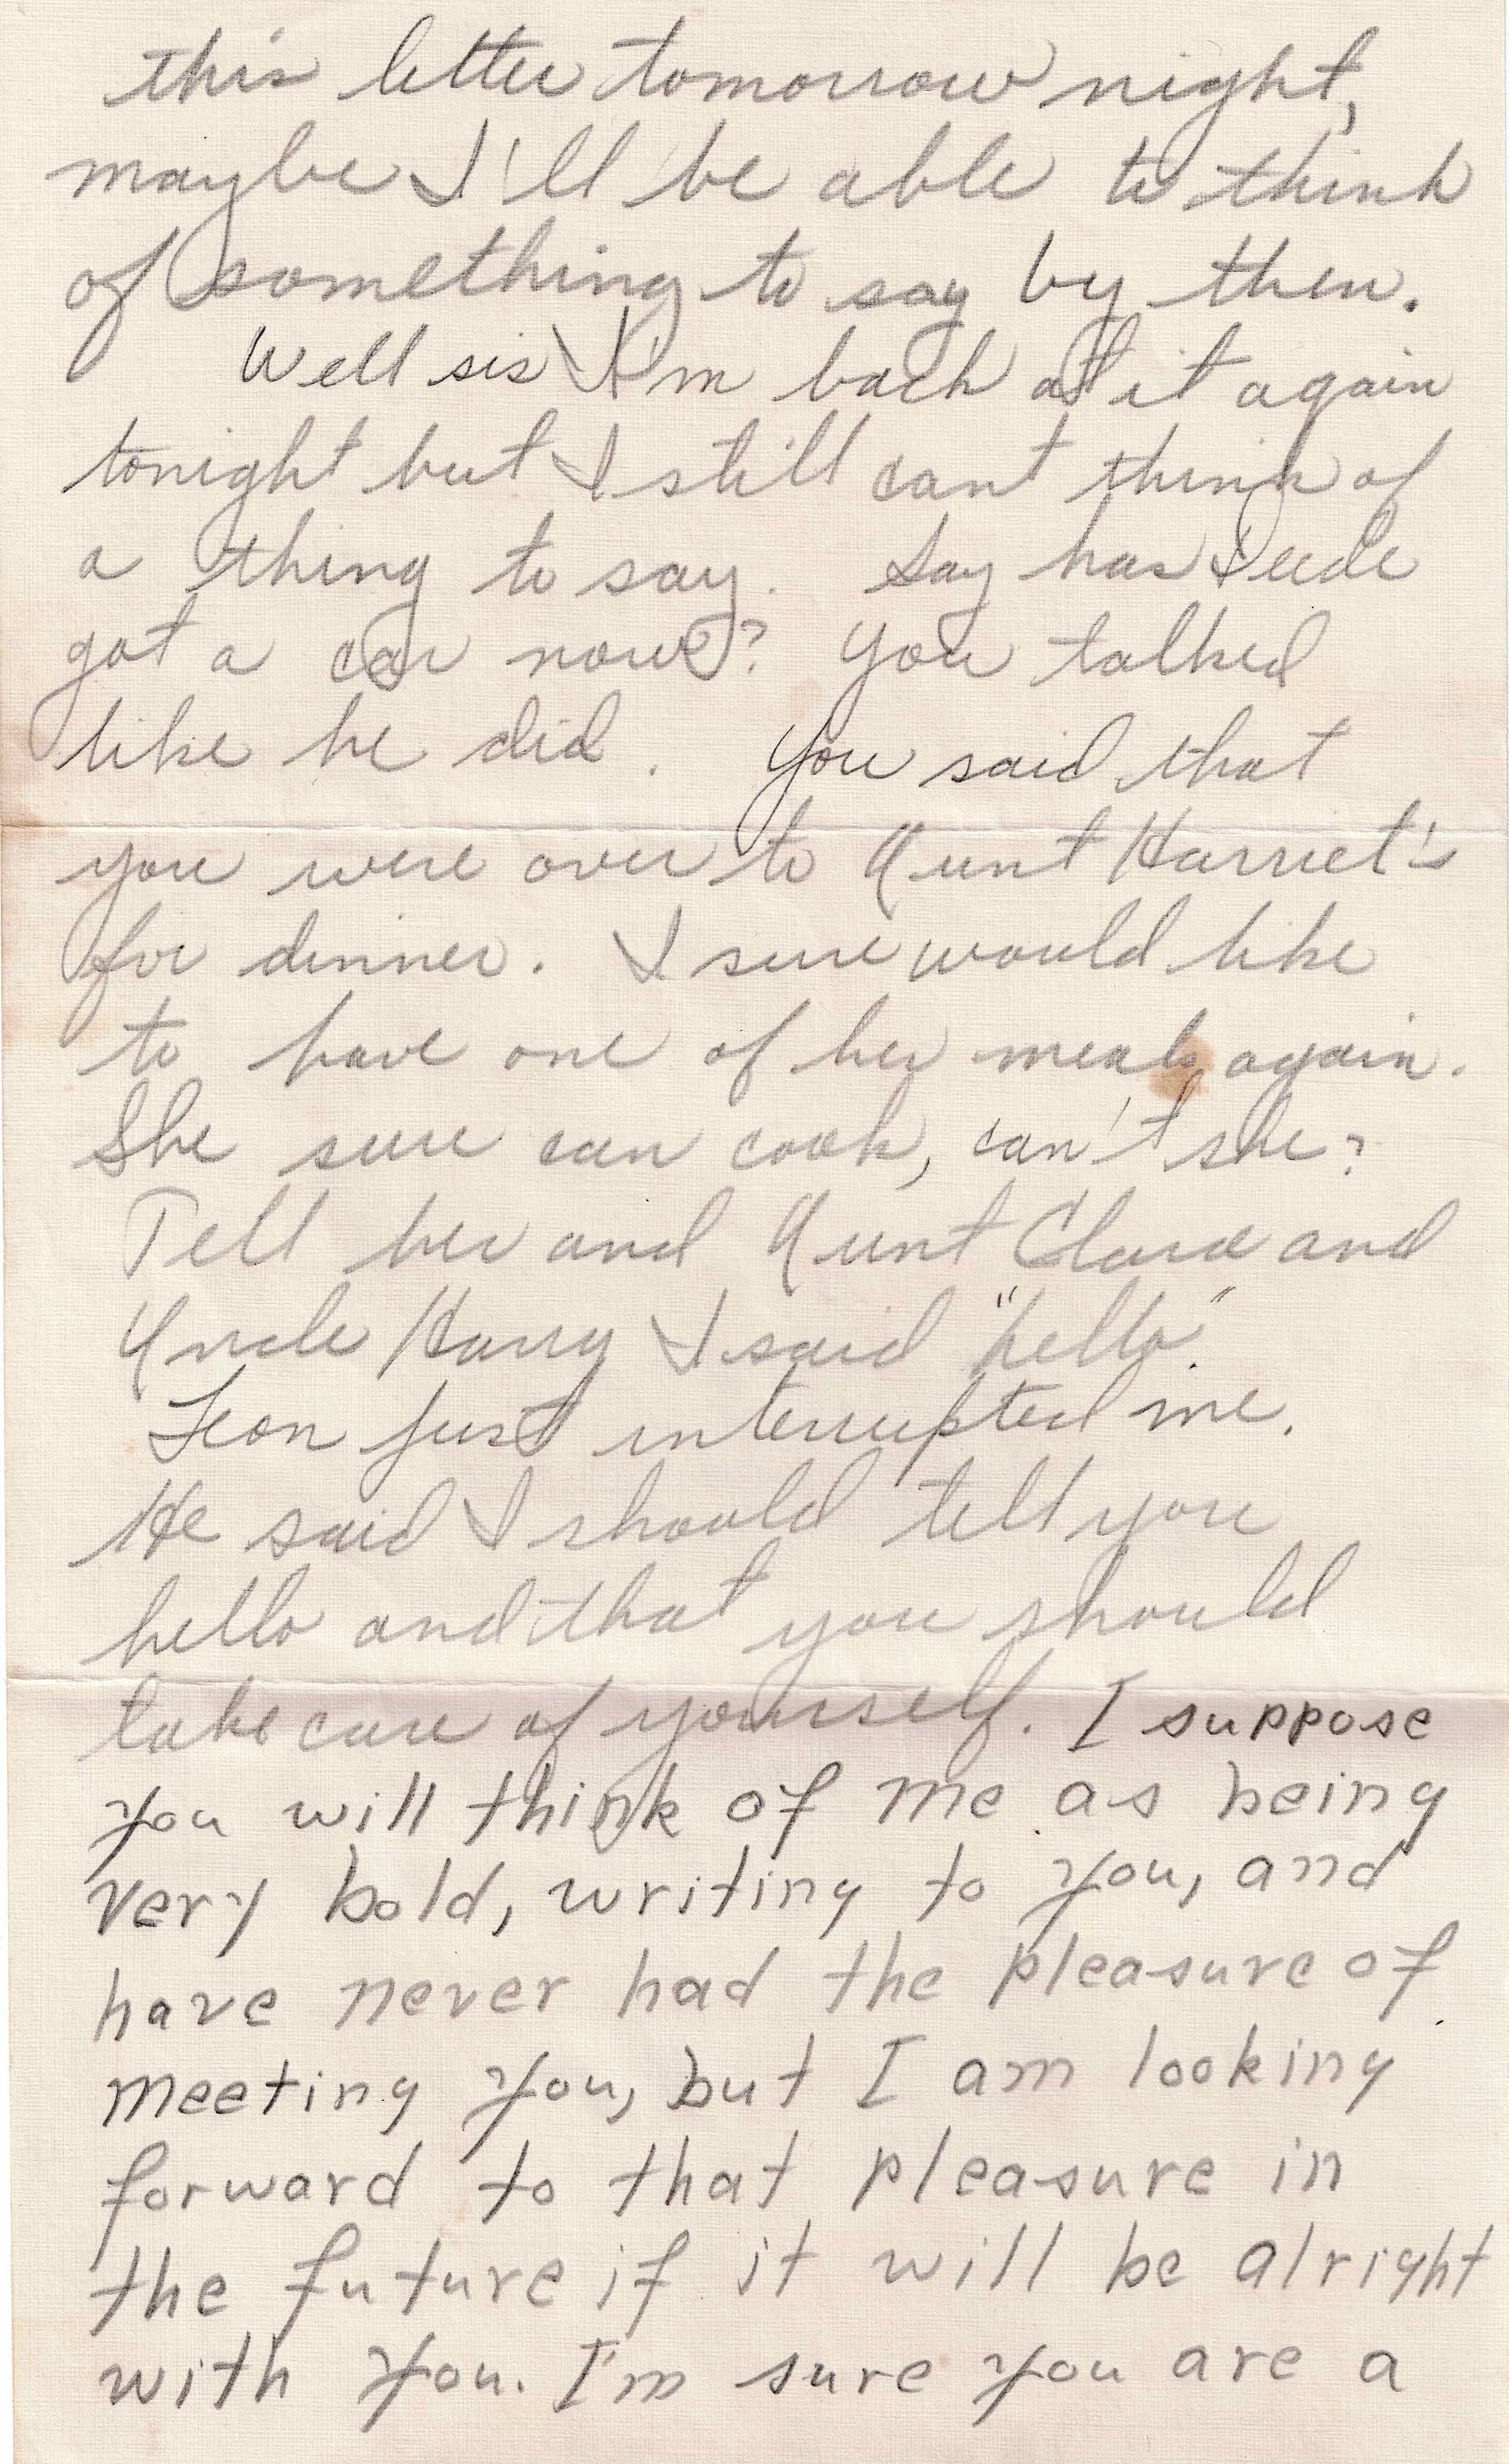 this letter tomorrow night,
maybe I'll be able to think
of something to say by then.
Well sis I'm back at it again
tonight but I still cant think of
a thing to say. Say has Deede
got a car now? You talked
like he did. You said that
you were over to Aunt Harriet's
for dinner. I sure would like
to have one of her meals again.
She sure can cook, can't she?
Tell her and Aunt Clara and
Uncle Harry I said "hello".
Leon just interrupted me.
He said I should tell you
hello and that you should
take care of yourself. I suppose
you will think of me as being
very bold, writing to you, and
have never had the pleasure of
meeting you, but I am looking
forward to that pleasure in
the future if it will be alright
with you. I'm sure you are a